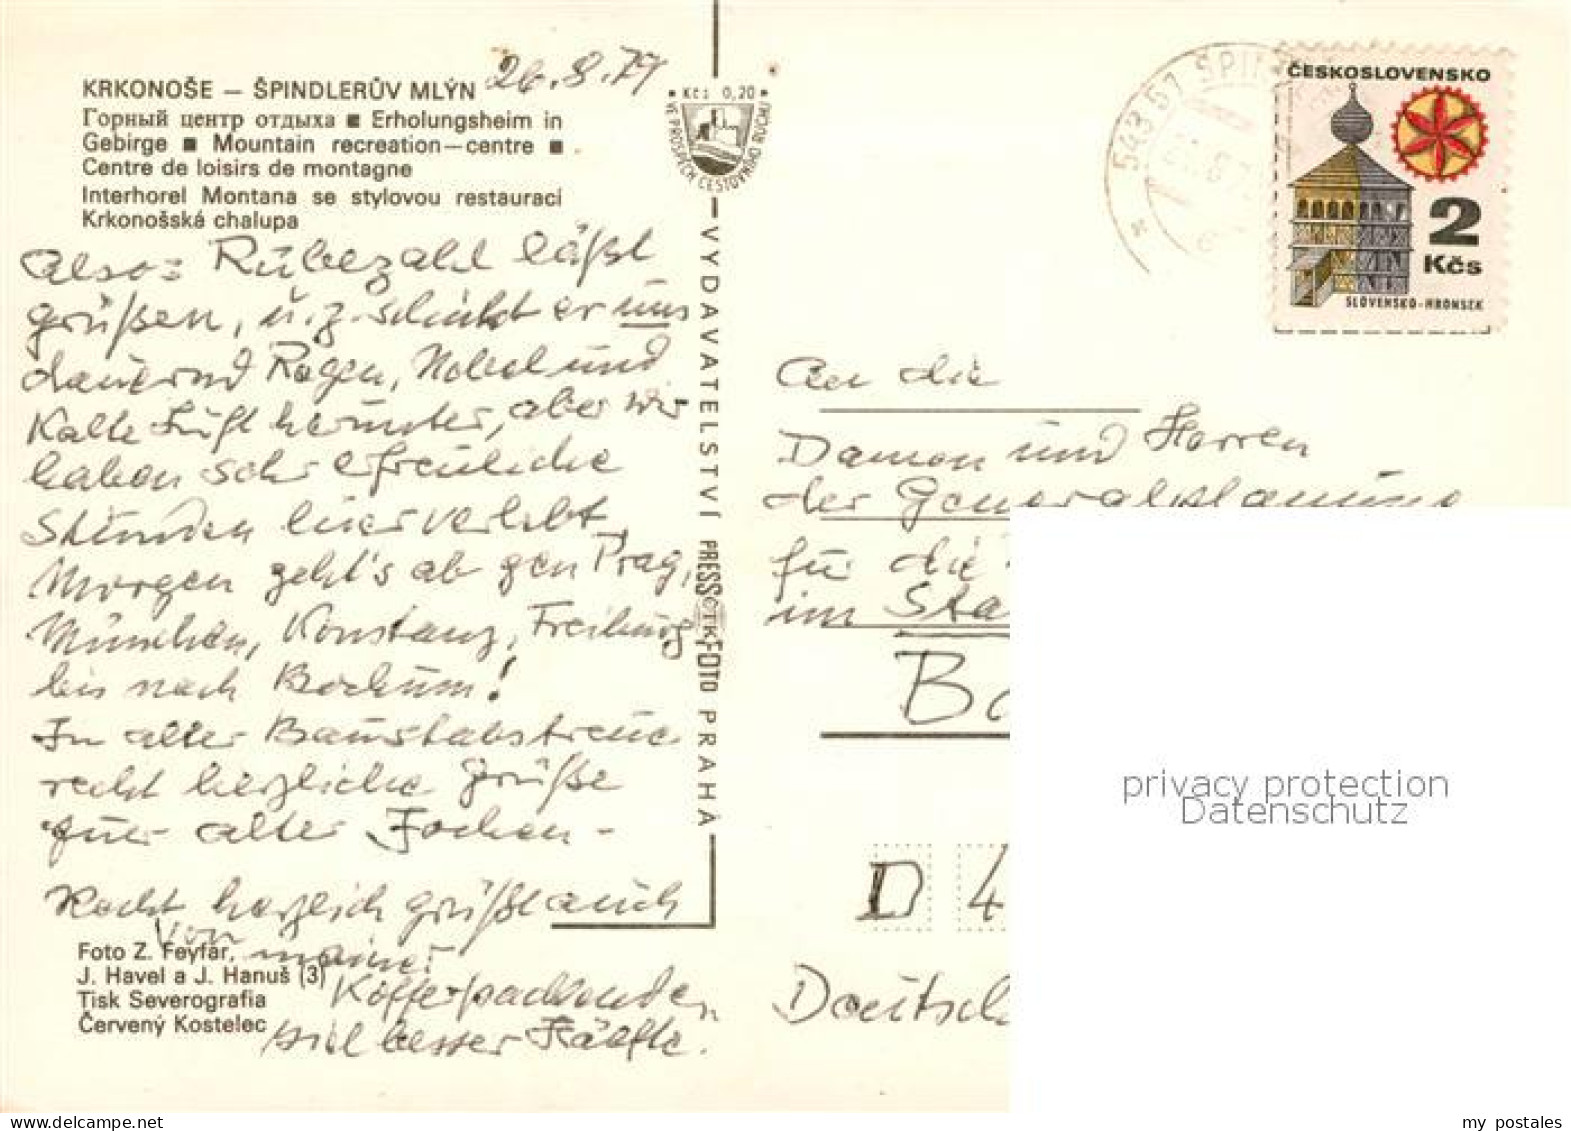 KRKONOŠE — ŠPINDLERŮV MLÝN
26.8.79
Горный центр отдыха ■ Erholungsheim in
Gebirge ■ Mountain recreation—centre ■
Centre de loisirs de montagne
Interhorel Montana se stylovou restaurací
Krkonošská chalupa
also: Rübezahl läßt
grüßen, u. z. schickt er uns
dauernd Regen, Nebel und
Kalte Luft herunter, aber wir
haben sehr erfreuliche
Stunden hier verlebt
Morgen geht's ab gen Prag,
München, Konstanz, Freiburg
bis nach Bochum!
In alter Baustabstreue
recht herzliche Grüße
Euer alter Jochen -
Recht herzlich grüßt auch
von meiner
Kofferpackenden
viel besser Hälfte.
Foto Z. Feyfar,
J. Havel a J. Hanuš (3)
Tisk Severografia
Červený Kostelec
Kčs 0,20
VE PROSPĚCH CESTOVNÍHO RUCHU
VYDAVATELSTVÍ PRESSFOTO PRAHA
ČTK
543 51 ŠPIN
ČESKOSLOVENSKO
2
Kčs
SLOVENSKO-HRONSEK
An die
Damen und Herren
der Generalplanung
für die
im Sta
Bo
D 4
Deutsch
privacy protection
Datenschutz
my postales